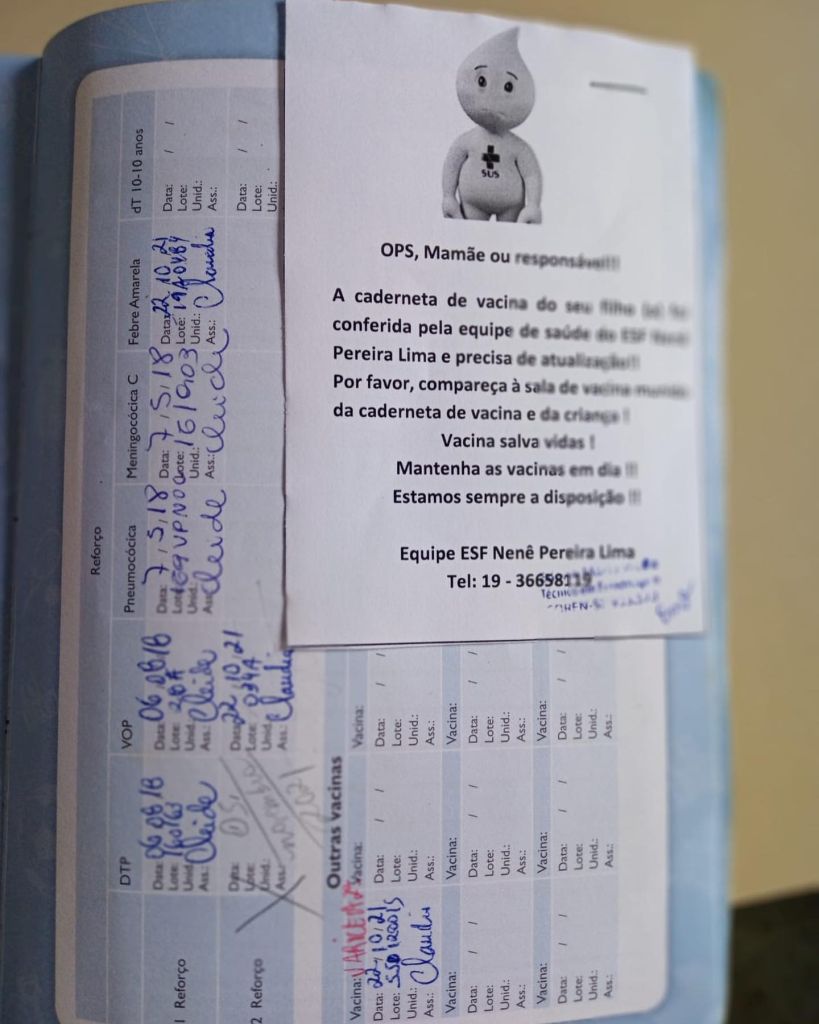 SUS
OPS, Mamãe ou responsável!!!
A caderneta de vacina do seu filho
conferida pela equipe de saúde do ESF Nenê
Pereira Lima e precisa de atualização!!
Por favor, compareça à sala de vacina munido
da caderneta de vacina e da criança !
Vacina salva vidas !
Mantenha as vacinas em dia !!!
Estamos sempre a disposição !!!
Equipe ESF Nenê Pereira Lima
Tel: 19 - 36658119
Reforço
DTP VOP Pneumocócica Meningocócica C Febre Amarela dT 10-10 anos
1 Reforço
Data: 06 08 18
Lote:
Unid.:
Ass.: Cleide
Data: 06 08 18
Lote:
Unid.:
Ass.: Cleide
Data: 7, 5, 18
Lote:
Unid.:
Ass.: Cleide
Data: 7, 5, 18
Lote: 161003
Unid.:
Ass.: Cleide
Data: 22 10 21
Lote:
Unid.:
Ass.: Claudia
Data: / /
Lote:
Unid.:
Ass.:
2 Reforço
Data: 05,
Lote:
Unid.:
Ass.: novembro
2021
Data: 22, 10, 21
Lote: 034A
Unid.:
Ass.: Claudia
Data: / /
Lote:
Unid.:
Outras vacinas
Vacina: VARICELA
Data: 22, 10, 21
Lote:
Unid.:
Ass.: Claudia
Vacina:
Data: / /
Lote:
Unid.:
Ass.:
Vacina:
Data: / /
Lote:
Unid.:
Ass.:
Vacina:
Data: / /
Lote:
Unid.:
Ass.:
Vacina:
Data: / /
Lote:
Unid.:
Ass.:
Vacina:
Data: / /
Lote:
Unid.:
Ass.:
Vacina:
Data: / /
Lote:
Unid.:
Ass.:
Vacina:
Data: / /
Lote:
Unid.:
Ass.:
Vacina:
Data: / /
Lote:
Unid.:
Ass.: